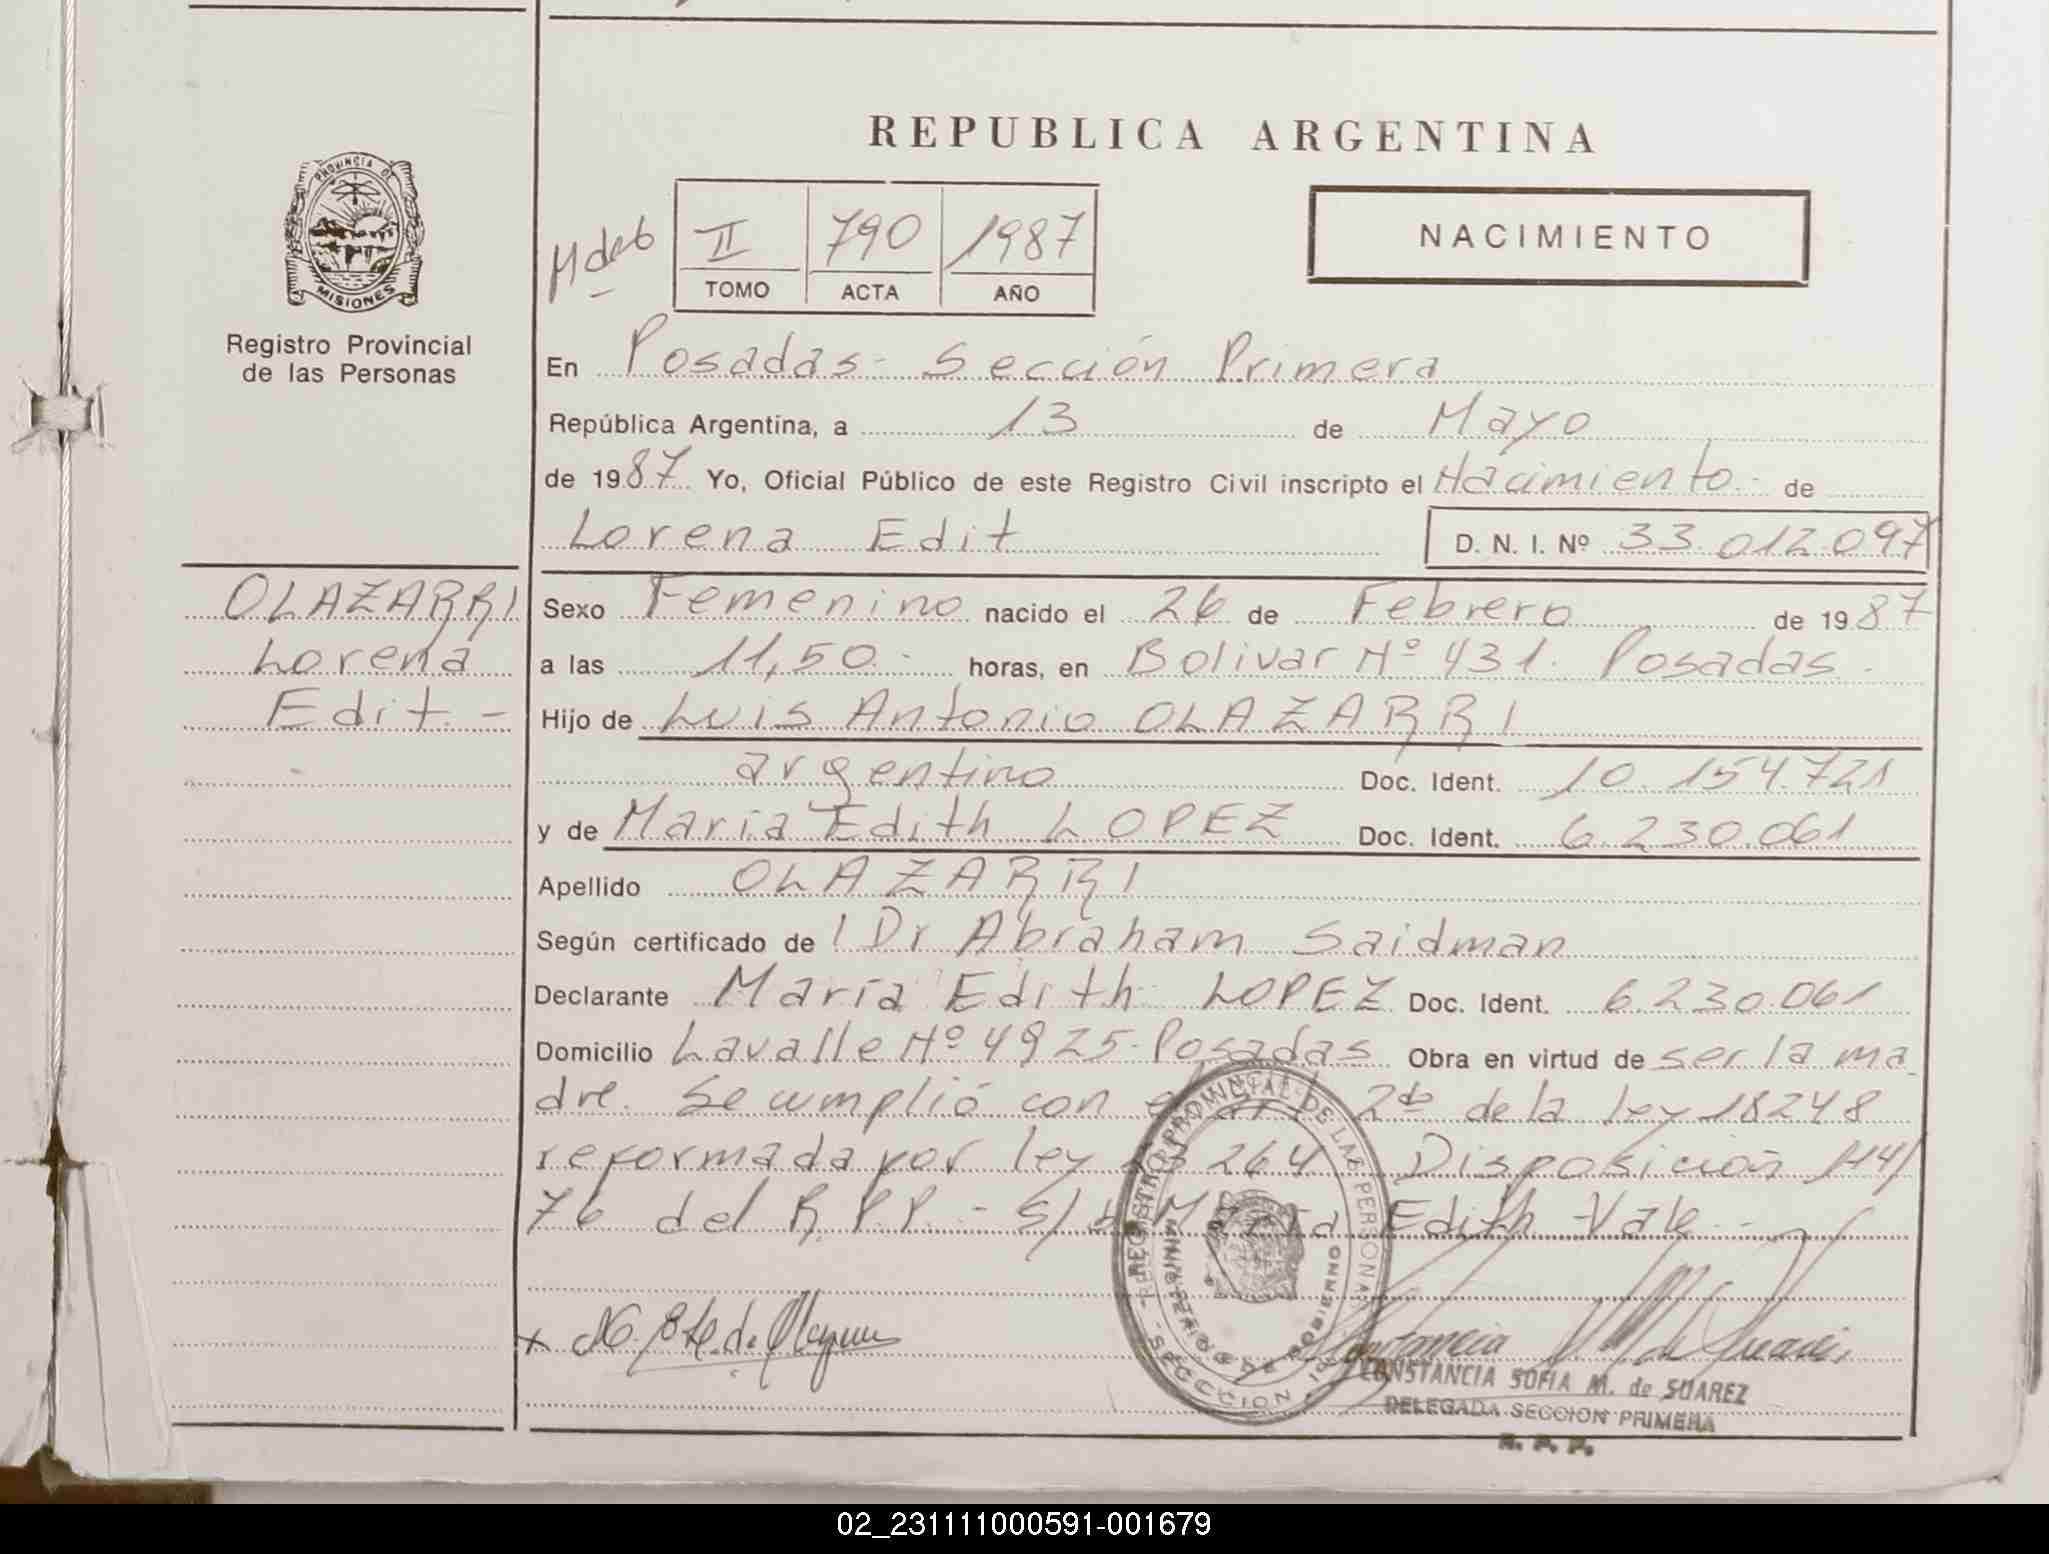 REPUBLICA ARGENTINA
PROVINCIA DE
MISIONES
Registro Provincial
de las Personas
II 790 1987
TOMO ACTA AÑO
NACIMIENTO
En Posadas - Sección Primera
República Argentina, a 13 de Mayo
de 1987 Yo, Oficial Público de este Registro Civil inscripto el Nacimiento.- de
Lorena Edit D. N. I. Nº 33.012.097
OLAZARRI
Lorena
Edit. -
Sexo Femenino nacido el 26 de Febrero de 1987
a las 11,50.- horas, en Bolivar Nº 431. Posadas.
Hijo de Luis Antonio OLAZARRI
argentino Doc. Ident. 10.154.721
y de Maria Edith LOPEZ Doc. Ident. 6.230.061
Apellido OLAZARRI
Según certificado de Dr Abraham Saidman
Declarante María Edith LOPEZ Doc. Ident. 6.230.061
Domicilio Lavalle Nº 4925-Posadas Obra en virtud de ser la ma
dre. Se cumplió con el art 2do de la ley 18248
reformada por ley 264 Disposición
76 del R.P.P. - María Edith -Vale.-
REGISTRO PROVINCIAL DE LAS PERSONAS
MINISTERIO DE GOBIERNO
SECCION 1
CONSTANCIA SOFIA M. de SUAREZ
DELEGADA SECCION PRIMERA
R. P. P.
02_231111000591-001679